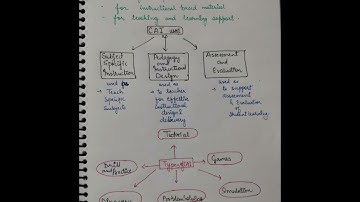 - for instructional broad material
- for teaching and learning support.
CAI uses
Subject
Specific
Instruction
Pedagogy
and
Instructional
Design
Assessment
and
Evaluation
used for
→ Teach
Specific
Subjects
used as
→ to teacher
for effective
instructional
design &
delivery
used as
→ to support
assessment
& Evaluation
of
student learning
Tutorial
Drill
and Practice
Types
Games
Simulation
Discovery
Problem Solving